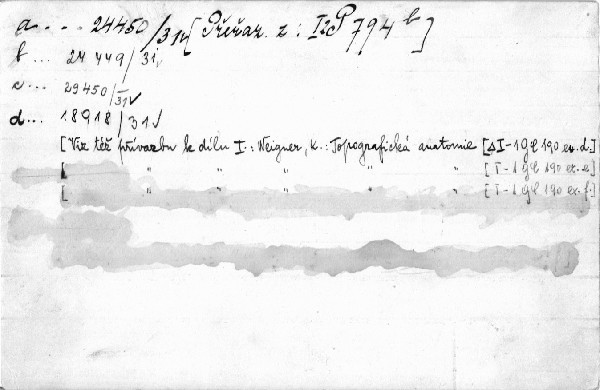 a.... 24450/31√ [Přeřaz. z: I2P 794 b]
b... 24449/31√
c... 29450/31√
d... 18918/31√
[Viz též přívazbu k dílu I.: Weigner, K.: Topografická anatomie [Δ I-1 gℓ 190 ex. d.]
[ " " " " " [I-1 gℓ 190 ex. e]
[ " " " " " [I-1 gℓ 190 ex. f.]